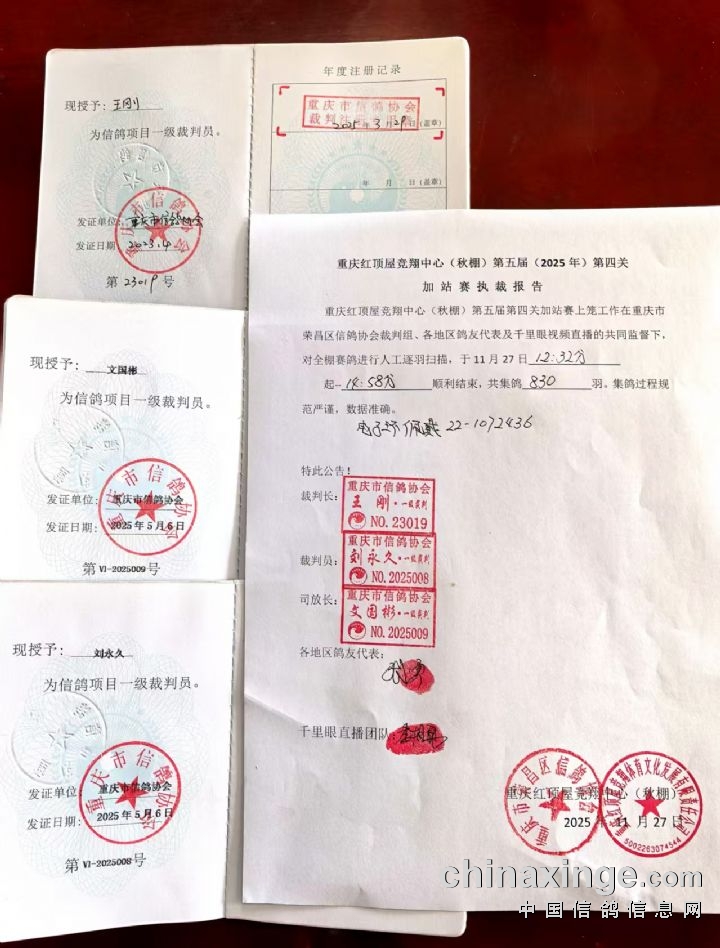 年度注册记录
现授予：王刚
为信鸽项目一级裁判员。
重庆市信鸽协会
2025年3月29日（盖章）
年 月 日（盖章）
发证单位：重庆市信鸽协会
发证日期：2023.4
第23019号
现授予：文国彬
为信鸽项目一级裁判员。
发证单位：重庆市信鸽协会
发证日期：2025年5月6日
第VI-2025009号
现授予：刘永久
为信鸽项目一级裁判员。
发证单位：重庆市信鸽协会
发证日期：2025年5月6日
第VI-2025008号
重庆红顶屋竞翔中心（秋棚）第五届（2025年）第四关
加站赛执裁报告
重庆红顶屋竞翔中心（秋棚）第五届第四关加站赛上笼工作在重庆市
荣昌区信鸽协会裁判组、各地区鸽友代表及千里眼视频直播的共同监督下，
对全棚赛鸽进行人工逐羽扫描，于11月27日12:32分
起--14:58分顺利结束，共集鸽830羽。集鸽过程规
范严谨，数据准确。
22-1072436
特此公告！
裁判长：
重庆市信鸽协会
王刚·一级裁判
NO.23019
裁判员：
重庆市信鸽协会
刘永久·一级裁判
NO.2025008
司放长：
重庆市信鸽协会
文国彬·一级裁判
NO.2025009
各地区鸽友代表：
千里眼直播团队：
重庆红顶屋竞翔中心（秋棚）
2025年11月27日
5002263074544
chinaxinge.com
中国信鸽信息网